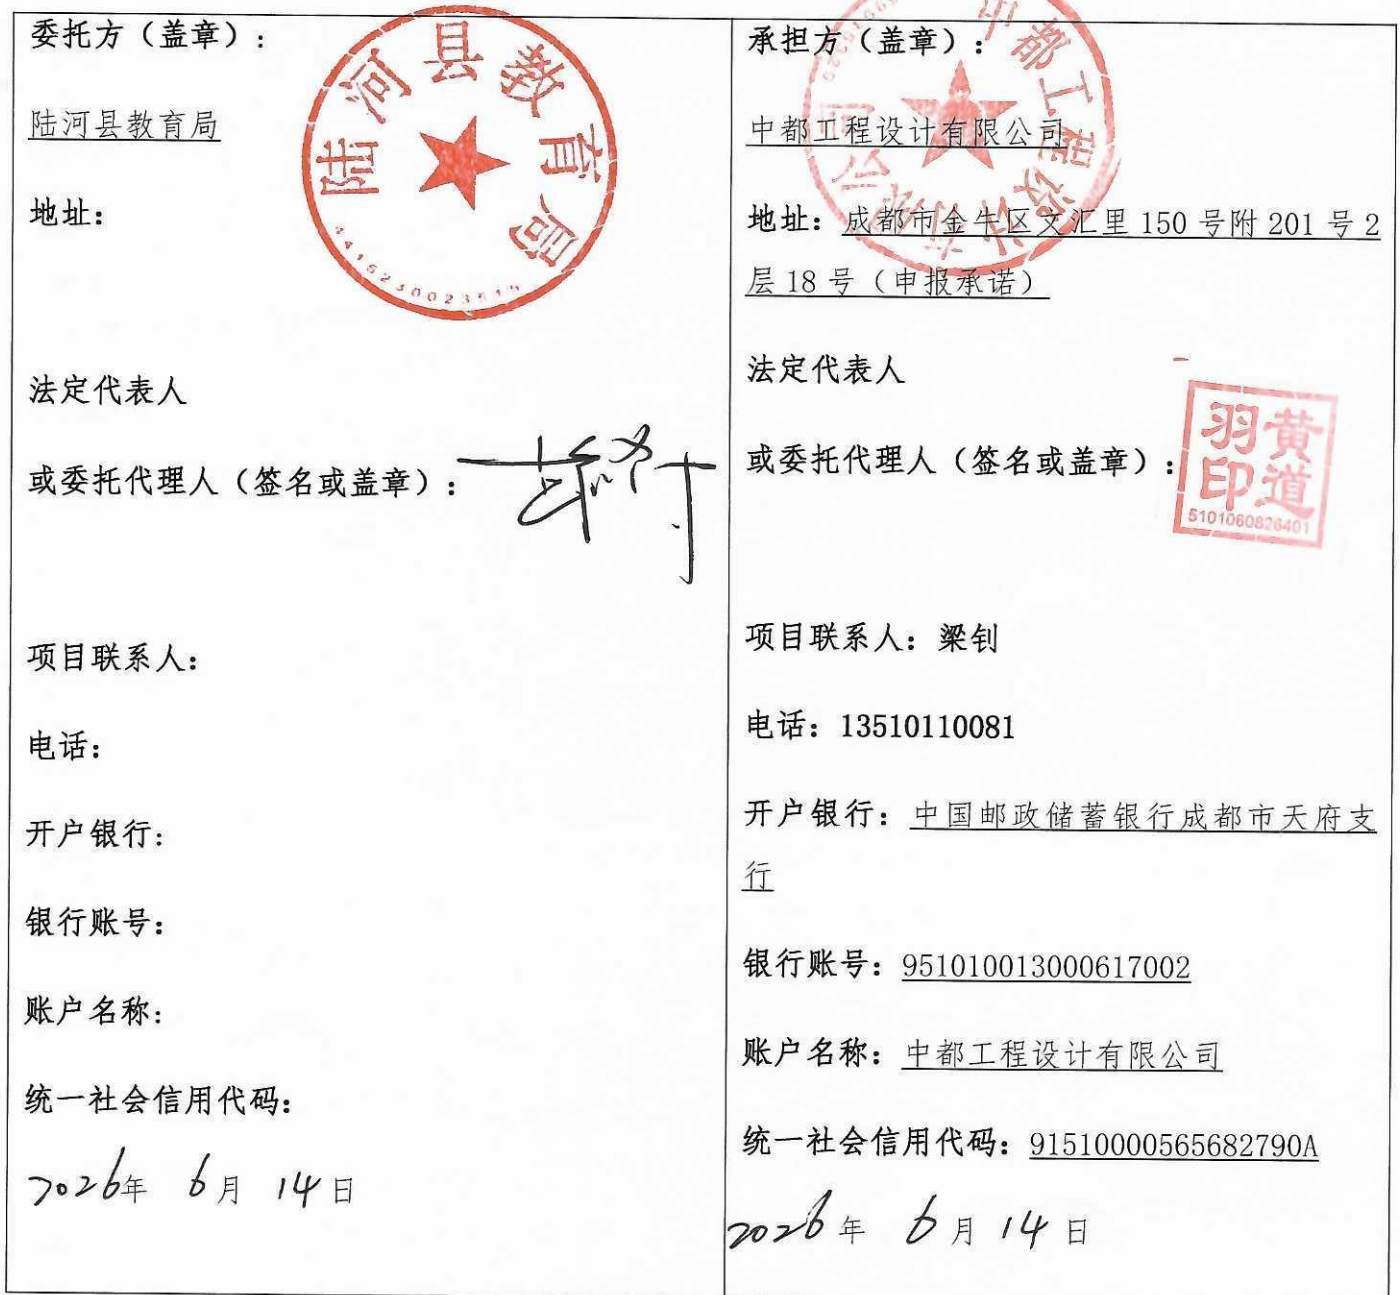 委托方（盖章）:
陆河县教育局
地址:
陆河县教育局
法定代表人
或委托代理人（签名或盖章）:
项目联系人:
电话:
开户银行:
银行账号:
账户名称:
统一社会信用代码:
2026年 6月 14日
承担方（盖章）:
中都工程设计有限公司
地址: 成都市金牛区文汇里 150 号附 201 号 2
层 18 号（申报承诺）
中都工程设计有限公司
法定代表人
或委托代理人（签名或盖章）:
黄道
羽印
5101060826401
项目联系人: 梁钊
电话: 13510110081
开户银行: 中国邮政储蓄银行成都市天府支
行
银行账号: 951010013000617002
账户名称: 中都工程设计有限公司
统一社会信用代码: 91510000565682790A
2026年 6月 14日